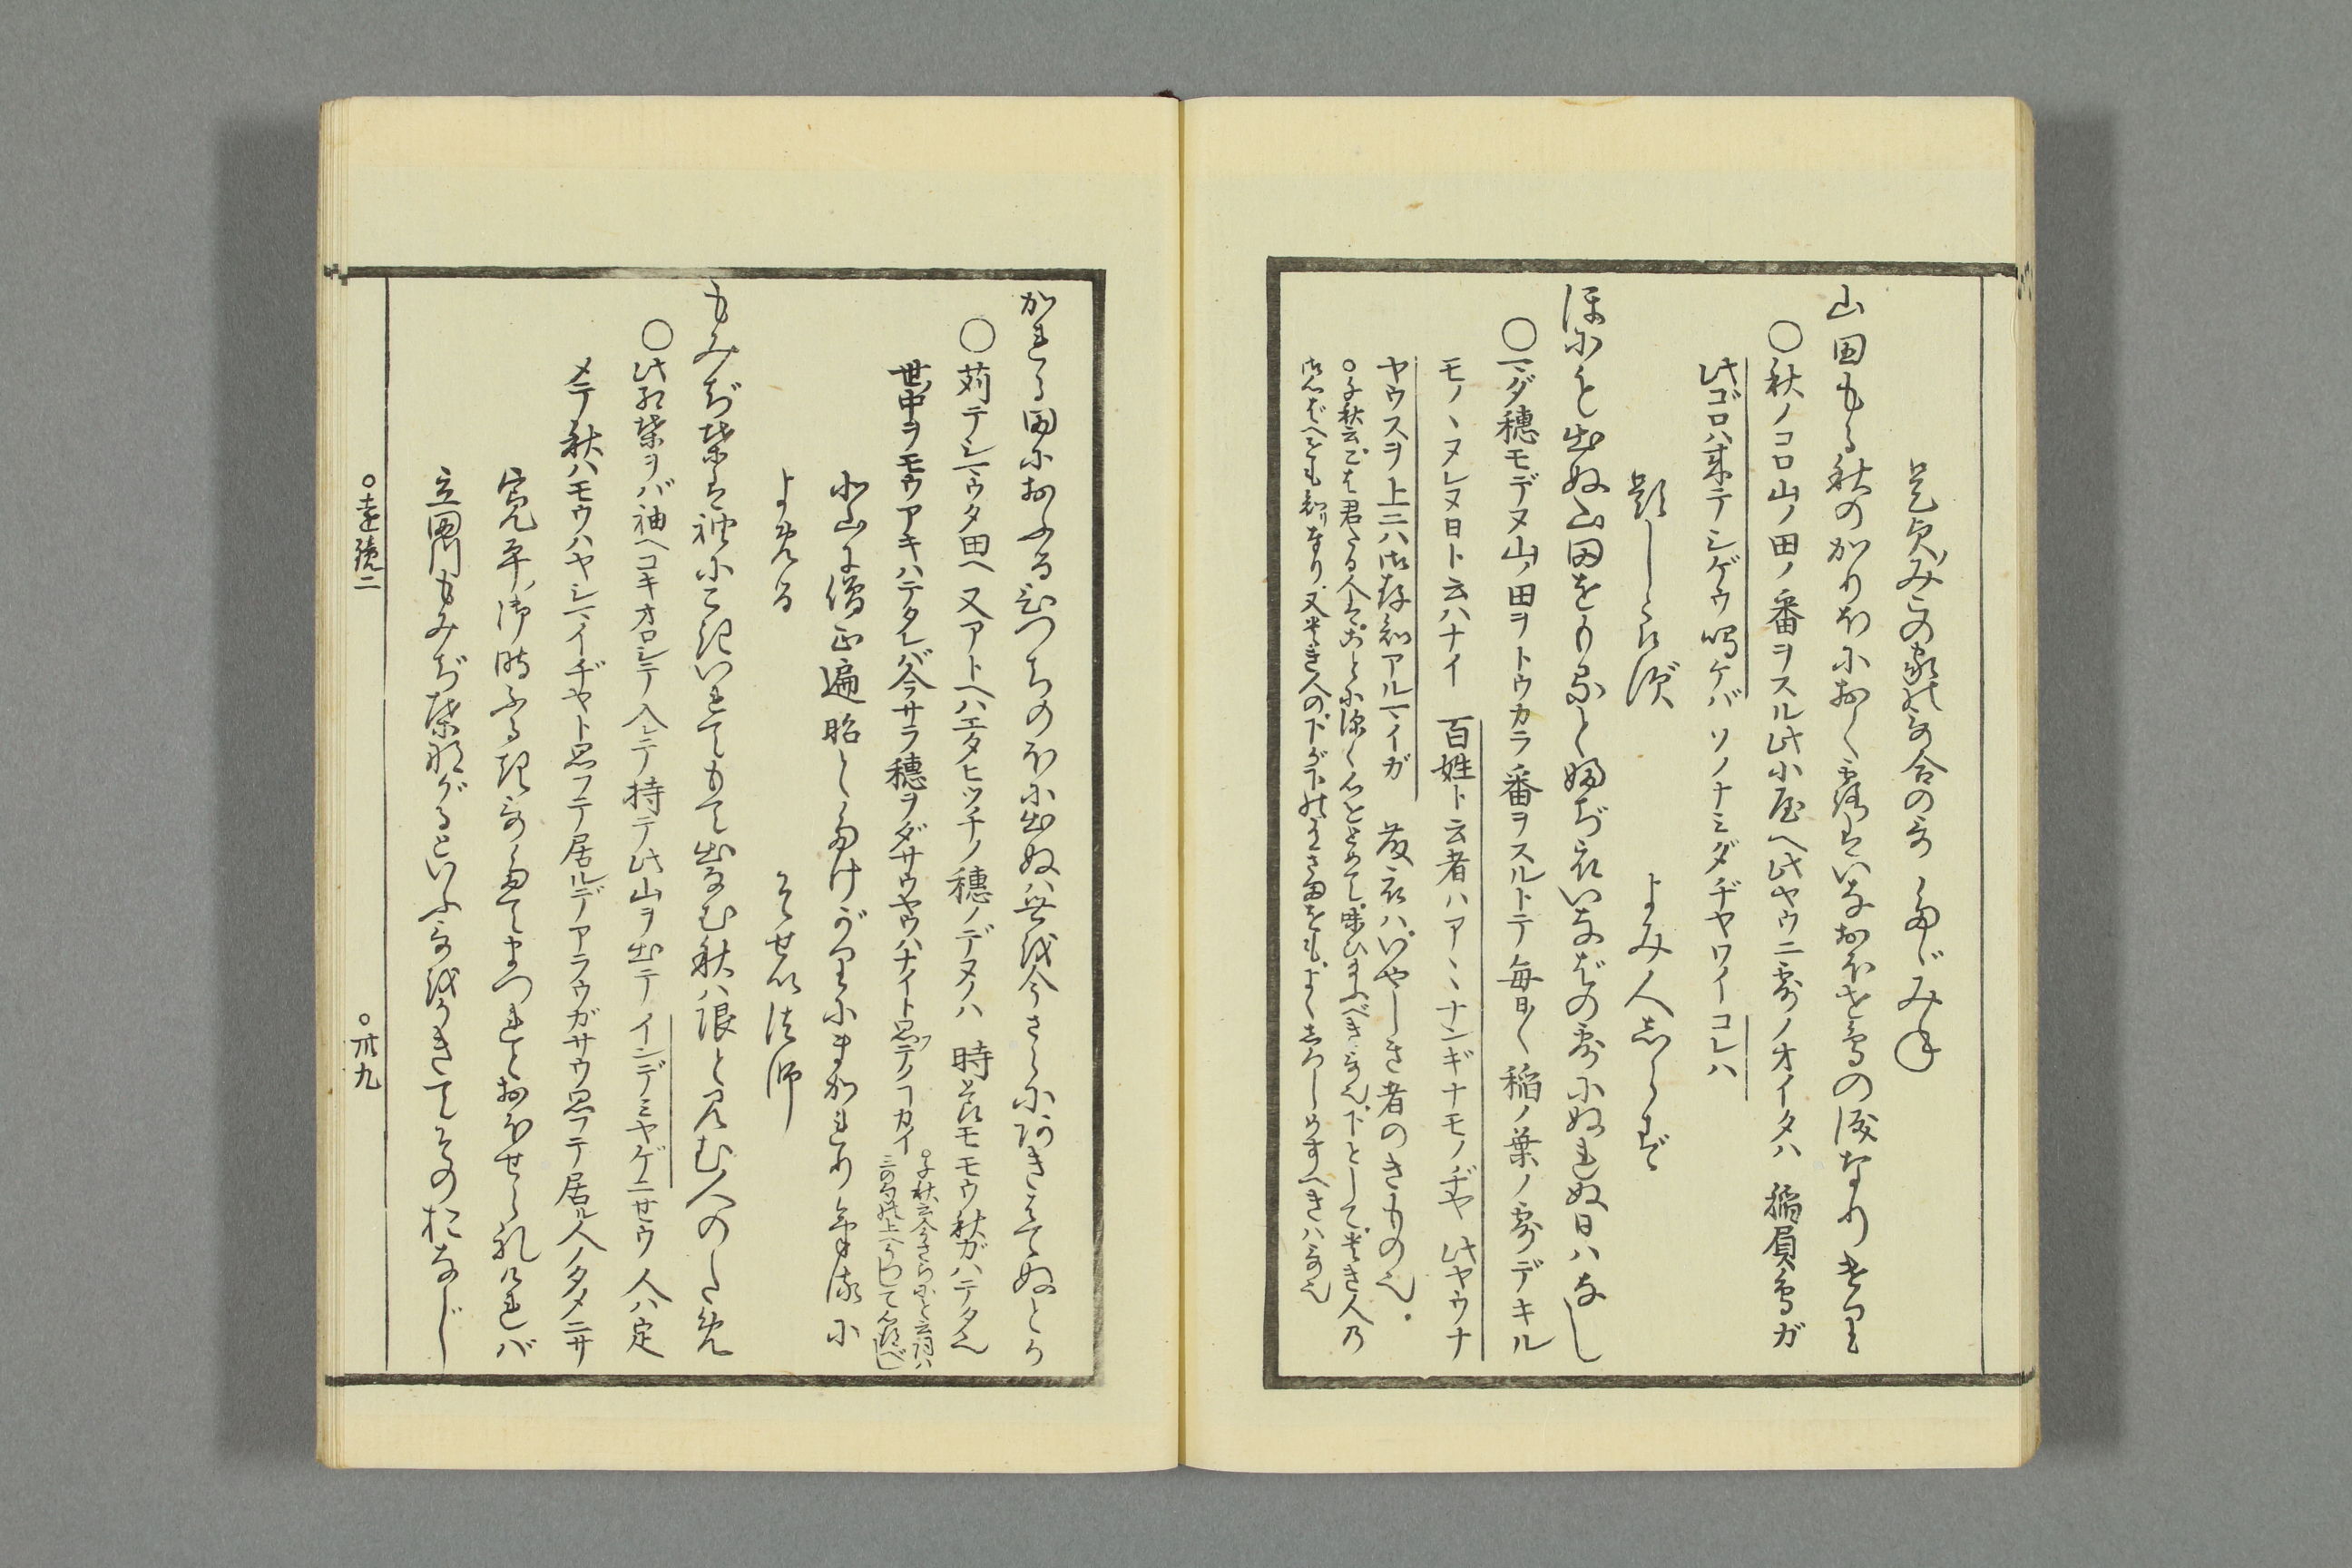 是貞のみこの家の哥合の哥　たゞみね
山田もる秋のかりほにおく露はいなおほせ鳥の涙なりけり
○秋ノコロ山ノ田ノ番ヲスル此小屋ヘ此ヤウニ露ノオイタハ　稲負鳥ガ
此ゴロハ来テシゲウ鳴ケバ　ソノナミダヂヤワイ　コレハ
題しらず　よみ人しらず
ほにも出ぬ山田をもると藤ぢ衣いなばの露にぬれぬ日はなし
○マダ穂モデヌ山ノ田ヲトウカラ番ヲスルトテ毎日〱稲ノ葉ノ露デキル
モノヽヌレヌ日ト云ハナイ　百姓ト云者ハアヽナンギナモノヂヤ　此ヤウナ
ヤウスヲ上ニハ御存知アルマイガ　藤衣ハいやしき者のきもの也
かれる田におふるひつちのほに出ぬは世を今さらにあきはてぬとか
○苅テシマウタ田ヘ　又アトヘハエタヒツチノ穂ノデヌノハ　時節モモウ秋ガハテタ也
世ノ中ヲモウアキハテタレバ今サラ穂ヲダサウヤウハナイト思フテノコカイ
北山に僧正遍昭とたけがりにまかれりけるに
よめる　そせい法師
もみぢ葉は袖にこきいれてもて出なむ秋は限と見む人のため
○此紅葉ヲバ袖ヘコキオロシテ入レテ持テ此山ヲ出テ　インデミヤゲニセウ　人ハ定
メテ秋ハモウハヤシマイヂヤト思フテ居ルデアラウガサウ思フテ居ル人ノタメニサ
寛平ノ御時ふるき哥たてまつれとおほせられければ
立田川もみぢ葉ながるといふ哥をかきてそのおなじ
○遠鏡二　○卅九